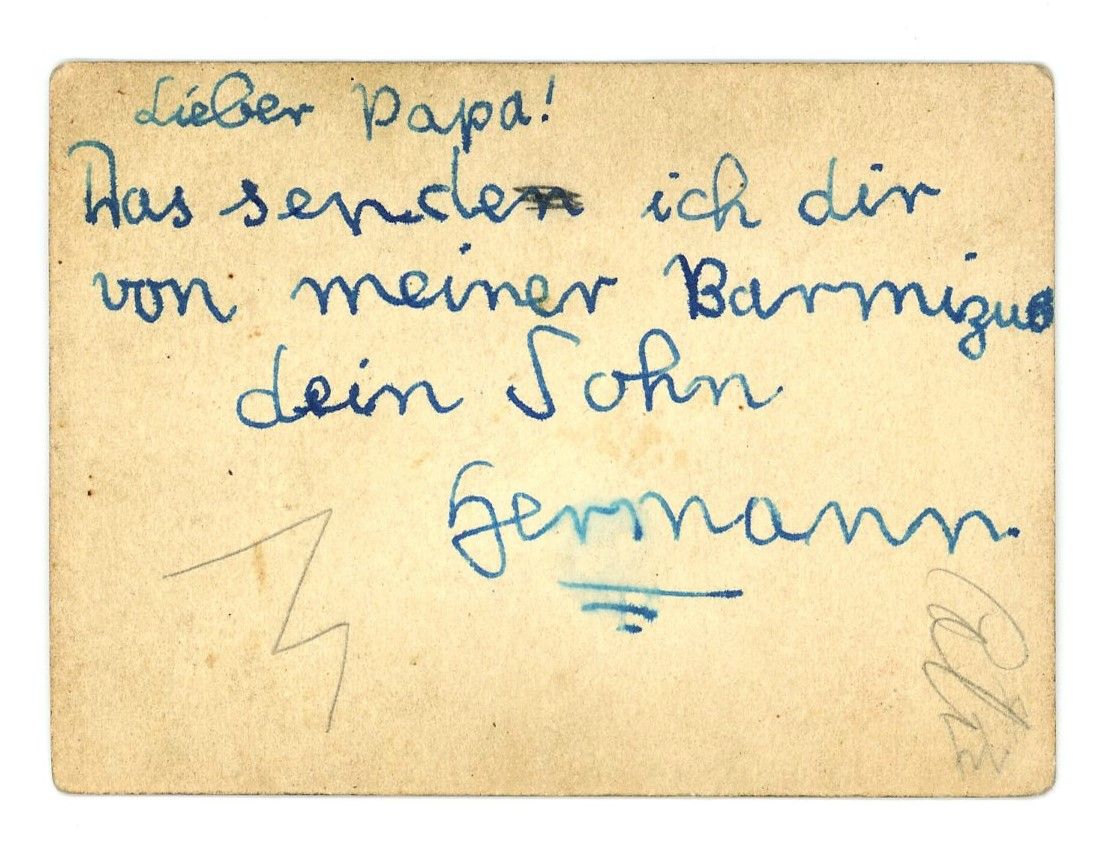 Lieber Papa!
Das sende ich dir
von meiner Barmizwo
dein Sohn
Hermann.